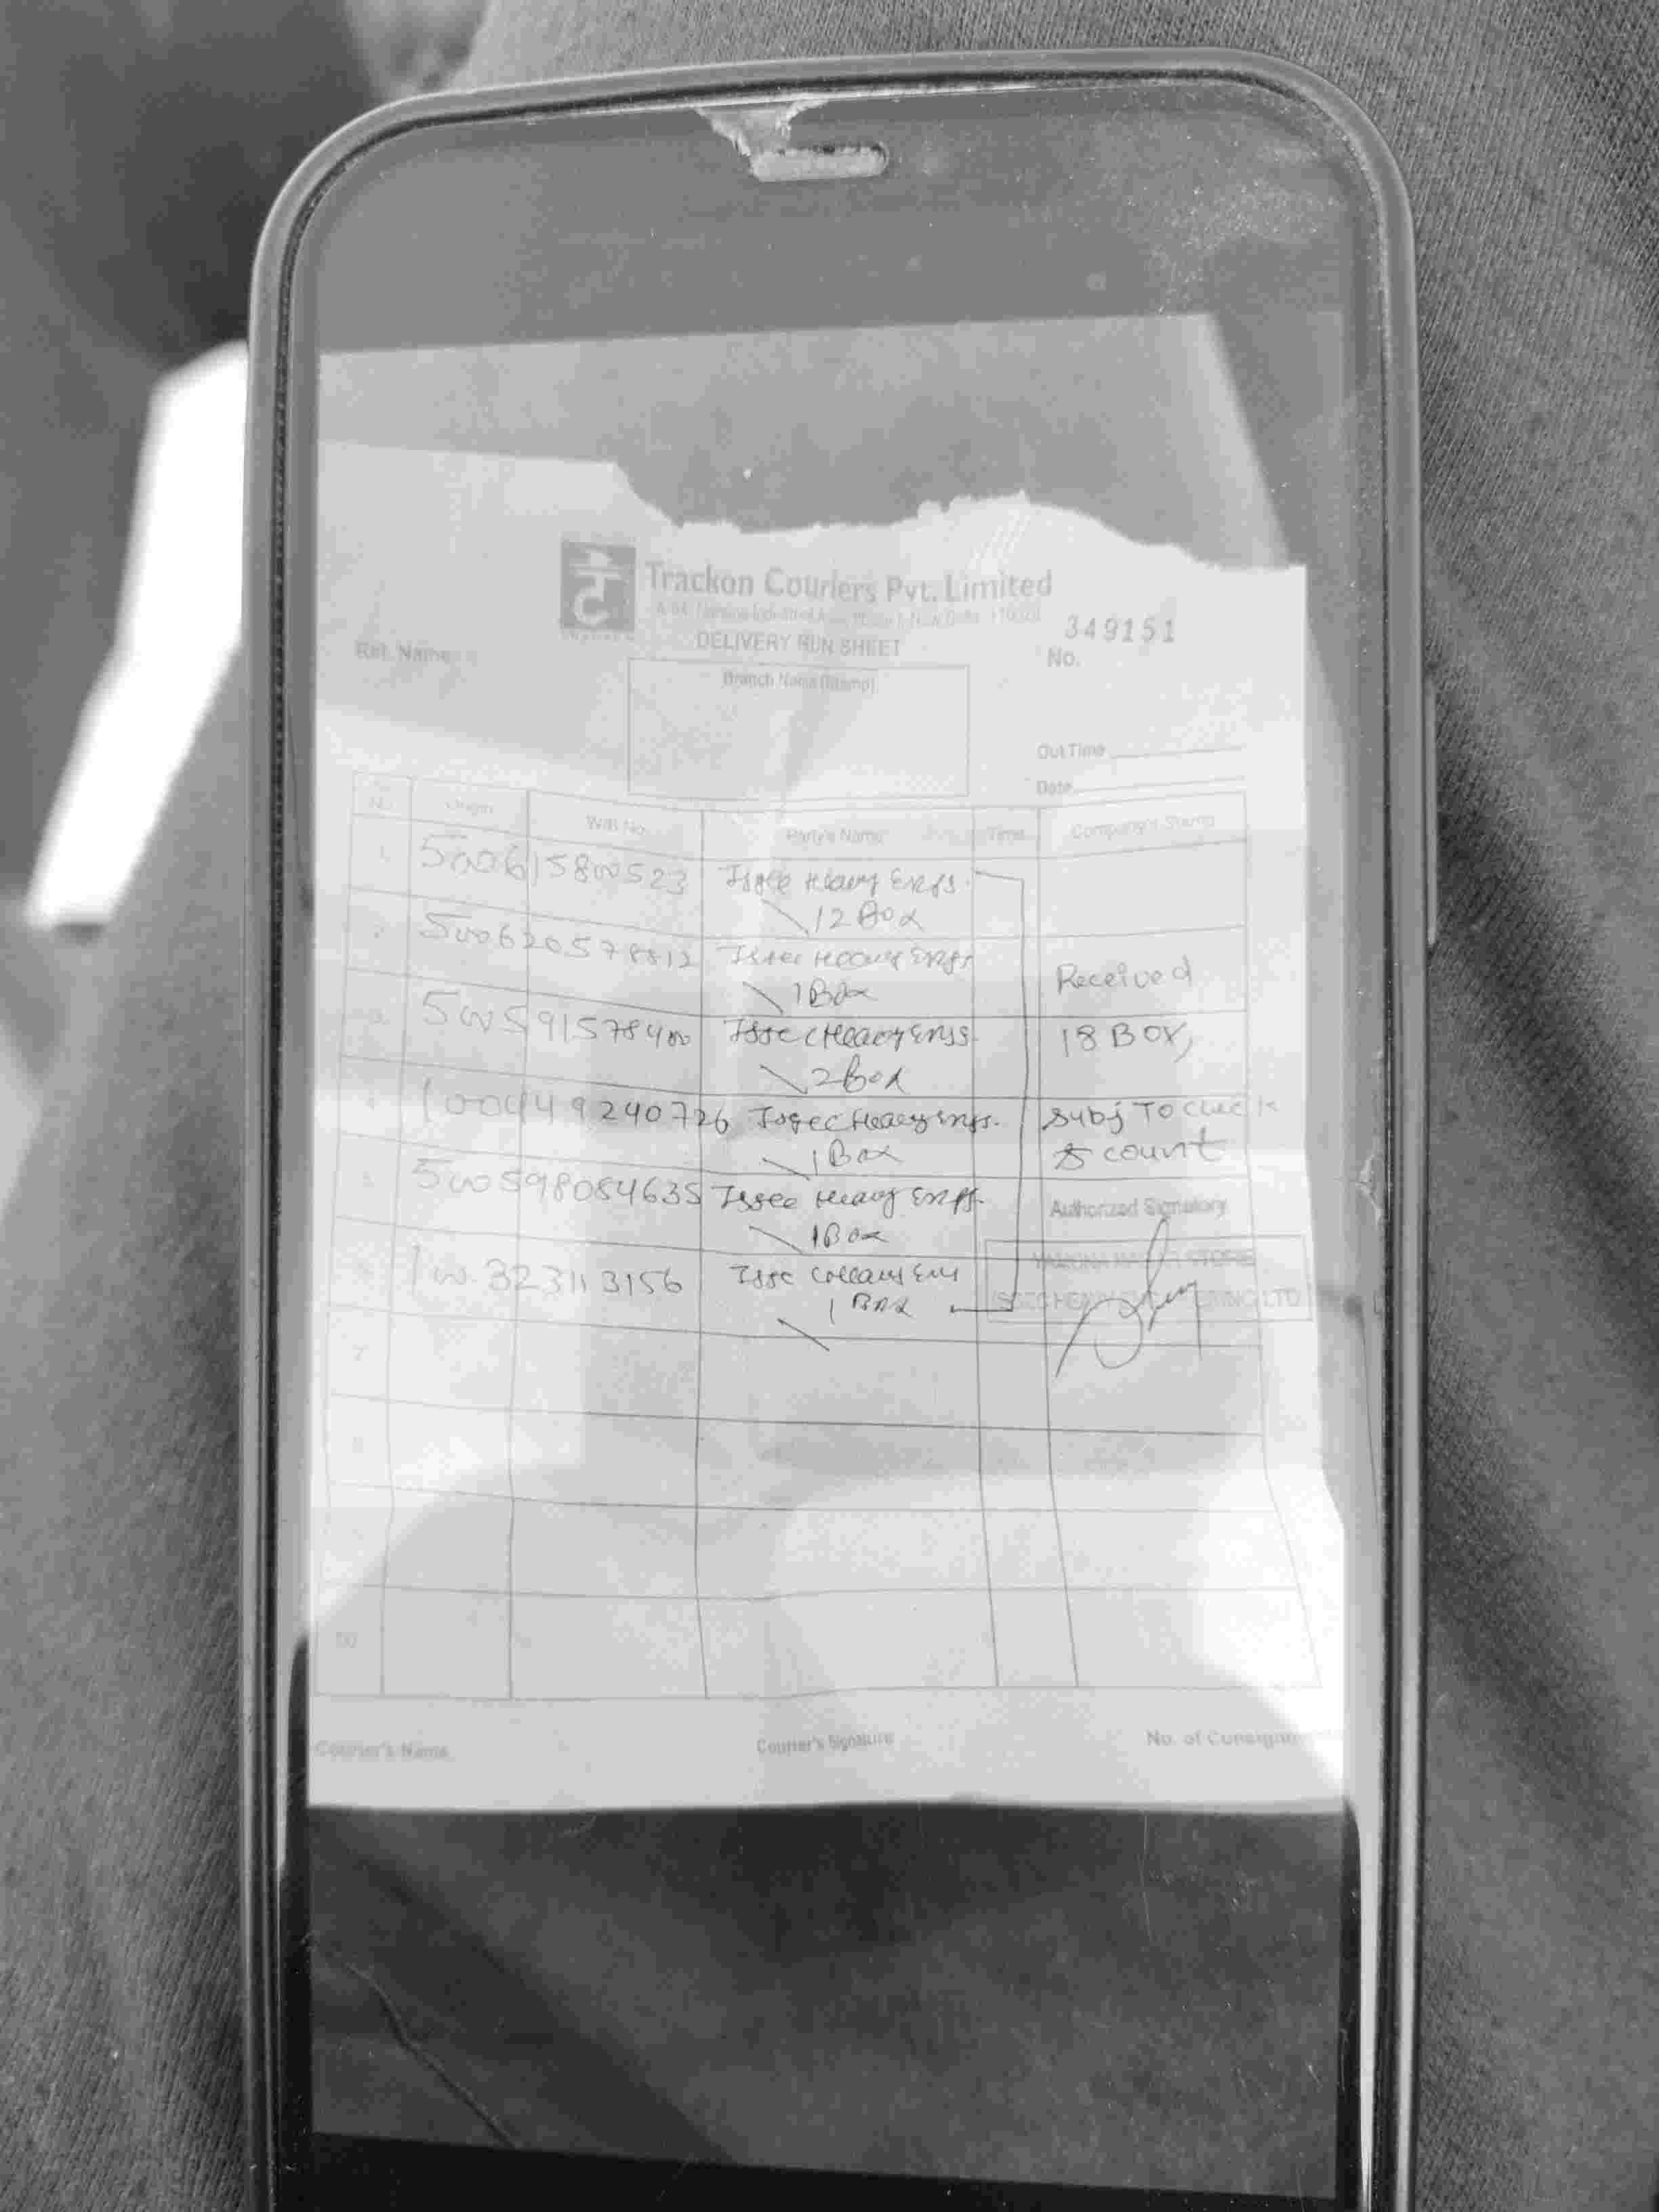 Trackon Couriers Pvt. Limited
DELIVERY RUN SHEET
349151
No.
Ret. Name
Branch Name (Stamp)
Out Time
Date
Origin
Party's Name
Time
Company's Stamp
1. 500615800523 Isgec Heavy Engg.
12 Box
500620578812 Isgec Heavy Engg
1 Box
Received
500591578400 Isgec Heavy Engg.
2 Box
18 Box,
100449240726 Isgec Heavy Engg.
1 Box
Subj To Check
& count
500598084635 Isgec Heavy Engg.
1 Box
Authorized Signatory
100323113156
1 Box
STORE
ISGEC HEAVY LTD
7
10
Courier's Name
Courier's Signature
No. of Consignm